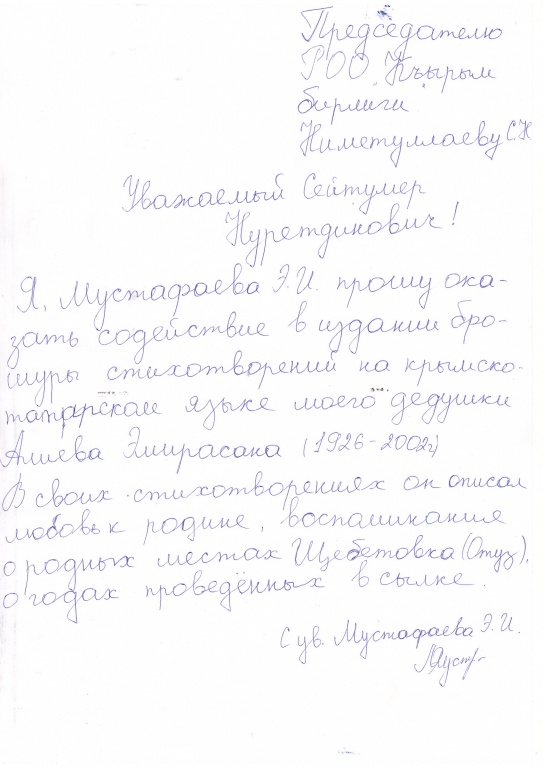 Председателю
РОО "Къырым
бирлиги"
Ниметуллаеву С.Н
Уважаемый Сейтумер
Нуретдинович!
Я, Мустафаева Э.И. прошу ока-
зать содействие в издании бро-
шуры стихотворений на крымско-
татарском языке моего дедушки
Алиева Эмирасана (1926-2002г)
В своих стихотворениях он описал
любовь к родине, воспоминания
о родных местах Щебетовка (Отуз),
о годах проведённых в сылке.
С ув. Мустафаева Э.И.